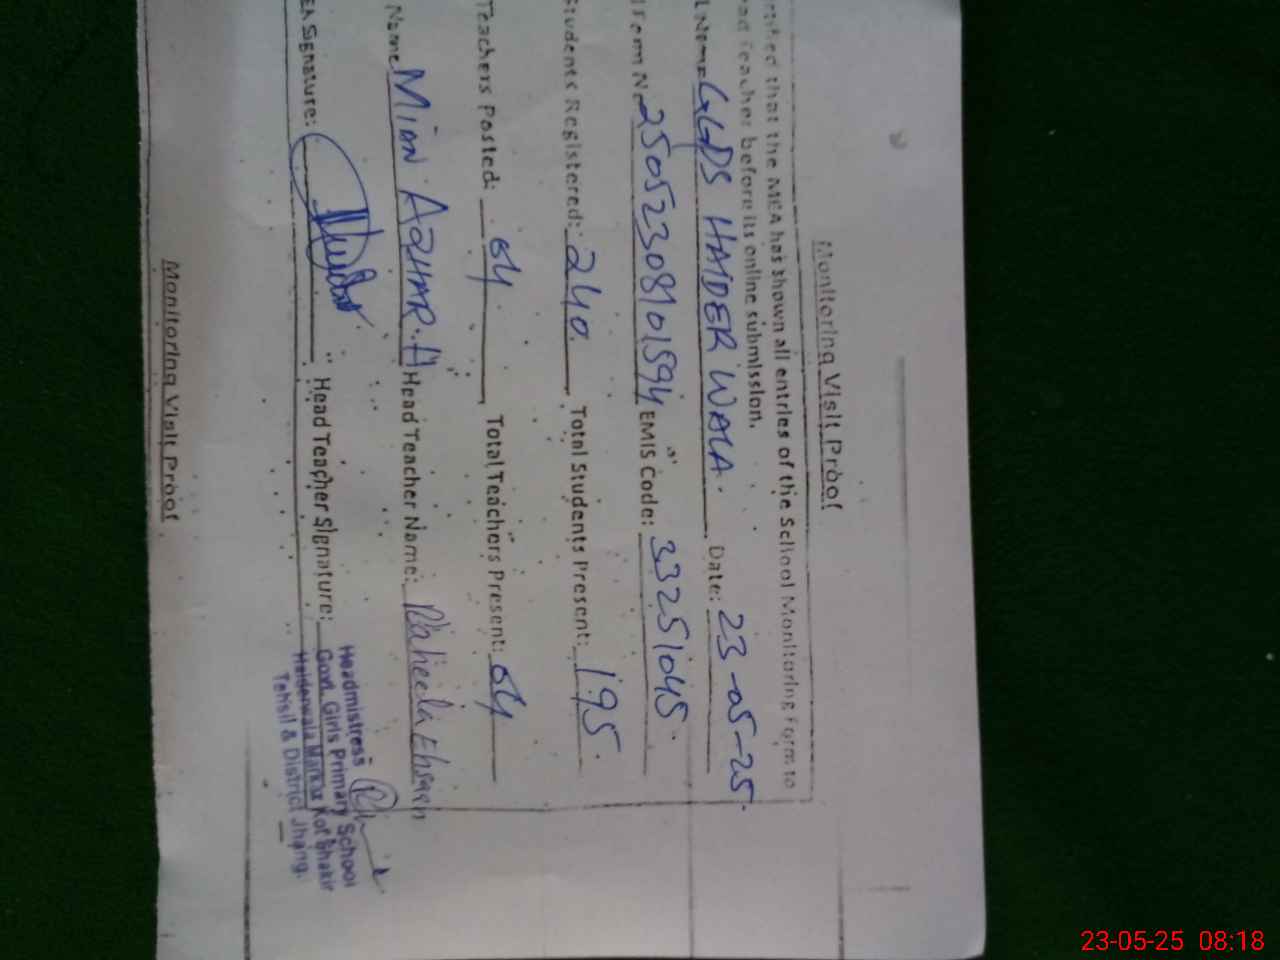 Monitoring Visit Proof
that the MEA has shown all entries of the School Monitoring Form to
Teacher before its online submission.
Name GGPS HAIDER WALA. Date: 23-05-25.
Form No 25052308101594 EMIS Code: 33251045.
Students Registered: 240. Total Students Present: 195.
Teachers Posted: 04. Total Teachers Present: 04
Name MIAN AZHAR. H Head Teacher Name: Raheela Ehsan
Signature: Head Teacher Signature:
Headmistress
Govt. Girls Primary School
Haiderwala Markaz Kot Shakir
Tehsil & District Jhang.
Monitoring Visit Proof
23-05-25 08:18